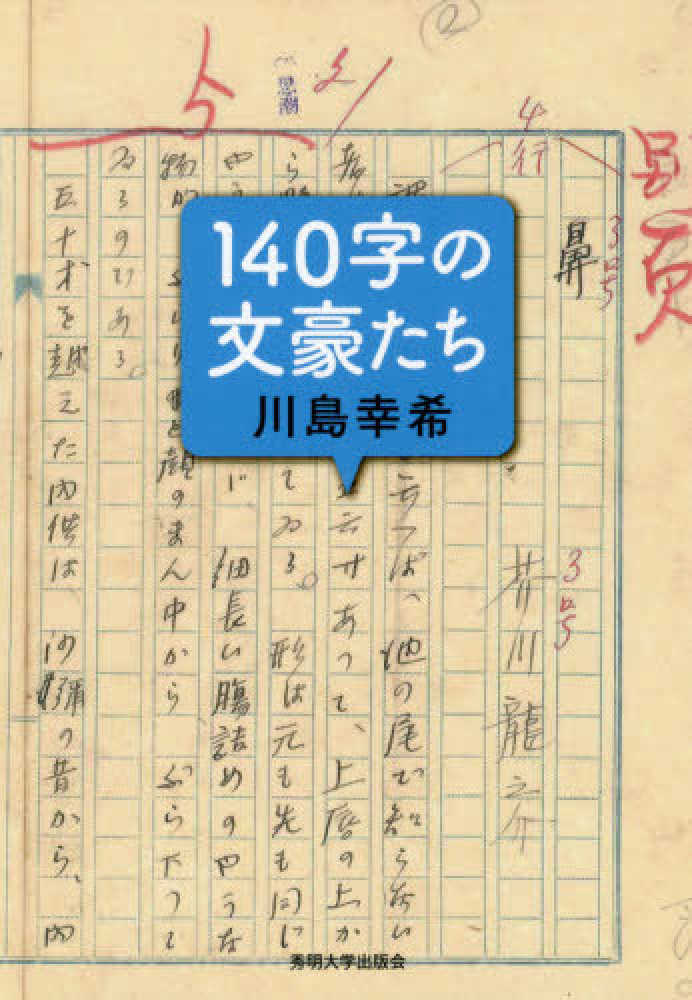 140字の
文豪たち
川島幸希
2
思潮
4行
別頁
鼻
3号
芥川龍之介
3号
云へば、池の尾で知らない
寸あつて、上唇の上か
ら
てゐる。形は元も先も同じ
細長い腸詰めのやうな
物が
顔のまん中からぶら下つて
ゐるのである。
五十才を越えた内供は、沙彌の昔から、内
秀明大学出版会